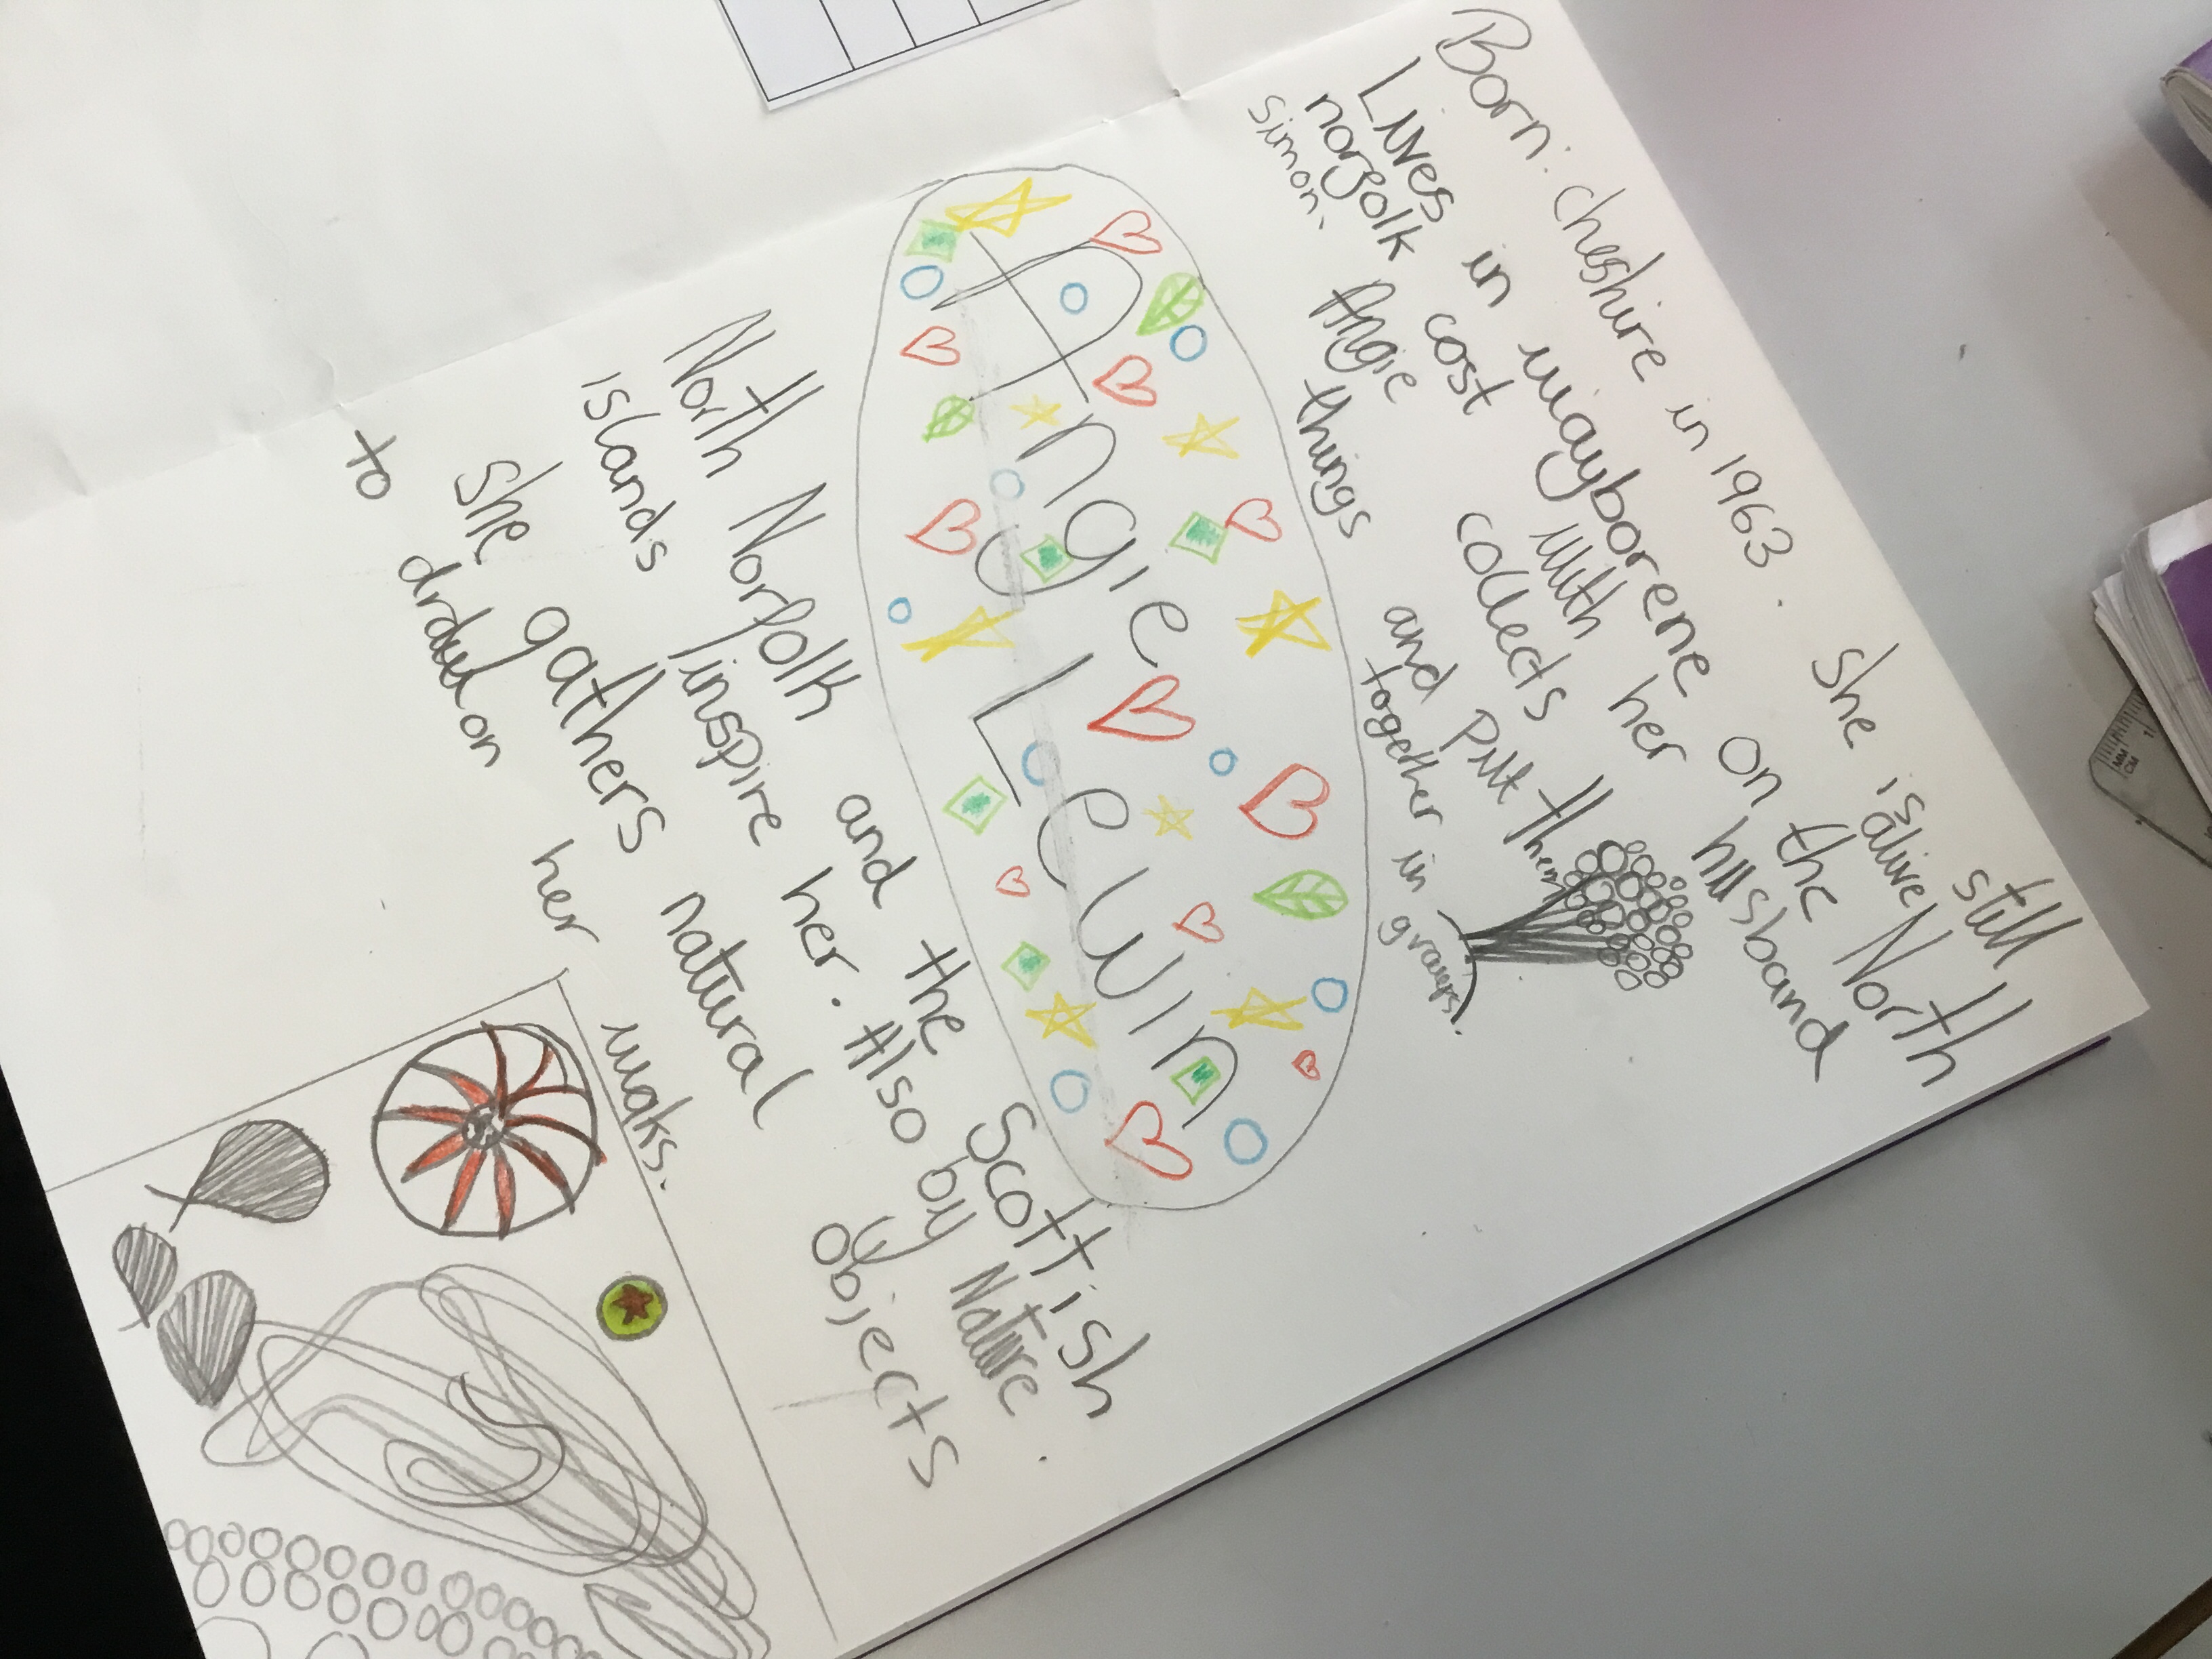 Born: cheshire in 1963. She is still alive
Lives in wayborene on the North
norfolk cost with her husband
Simon. Angie collects
things and put them
together in groups.
Angie Lewin
North Norfolk and the Scottish
islands inspire her. Also by Nature.
She gathers natural objects
to draw on her walks.
MM
CM
1